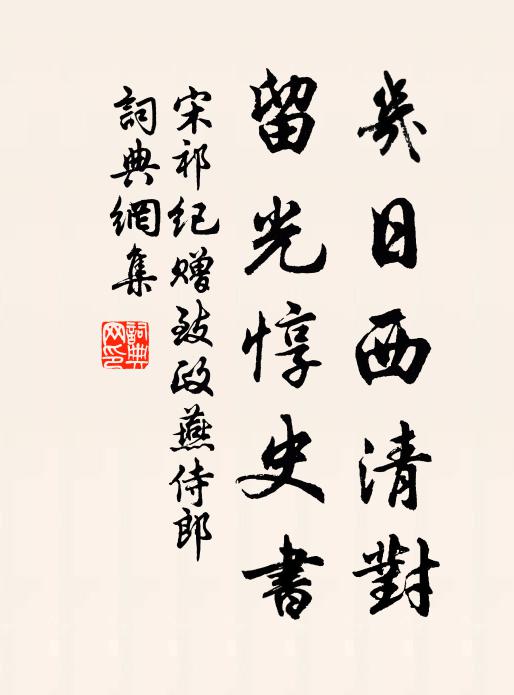 幾日西清對
留光惇史書
宋祁紀贈致政燕侍郎
詞典網集
詞典網印